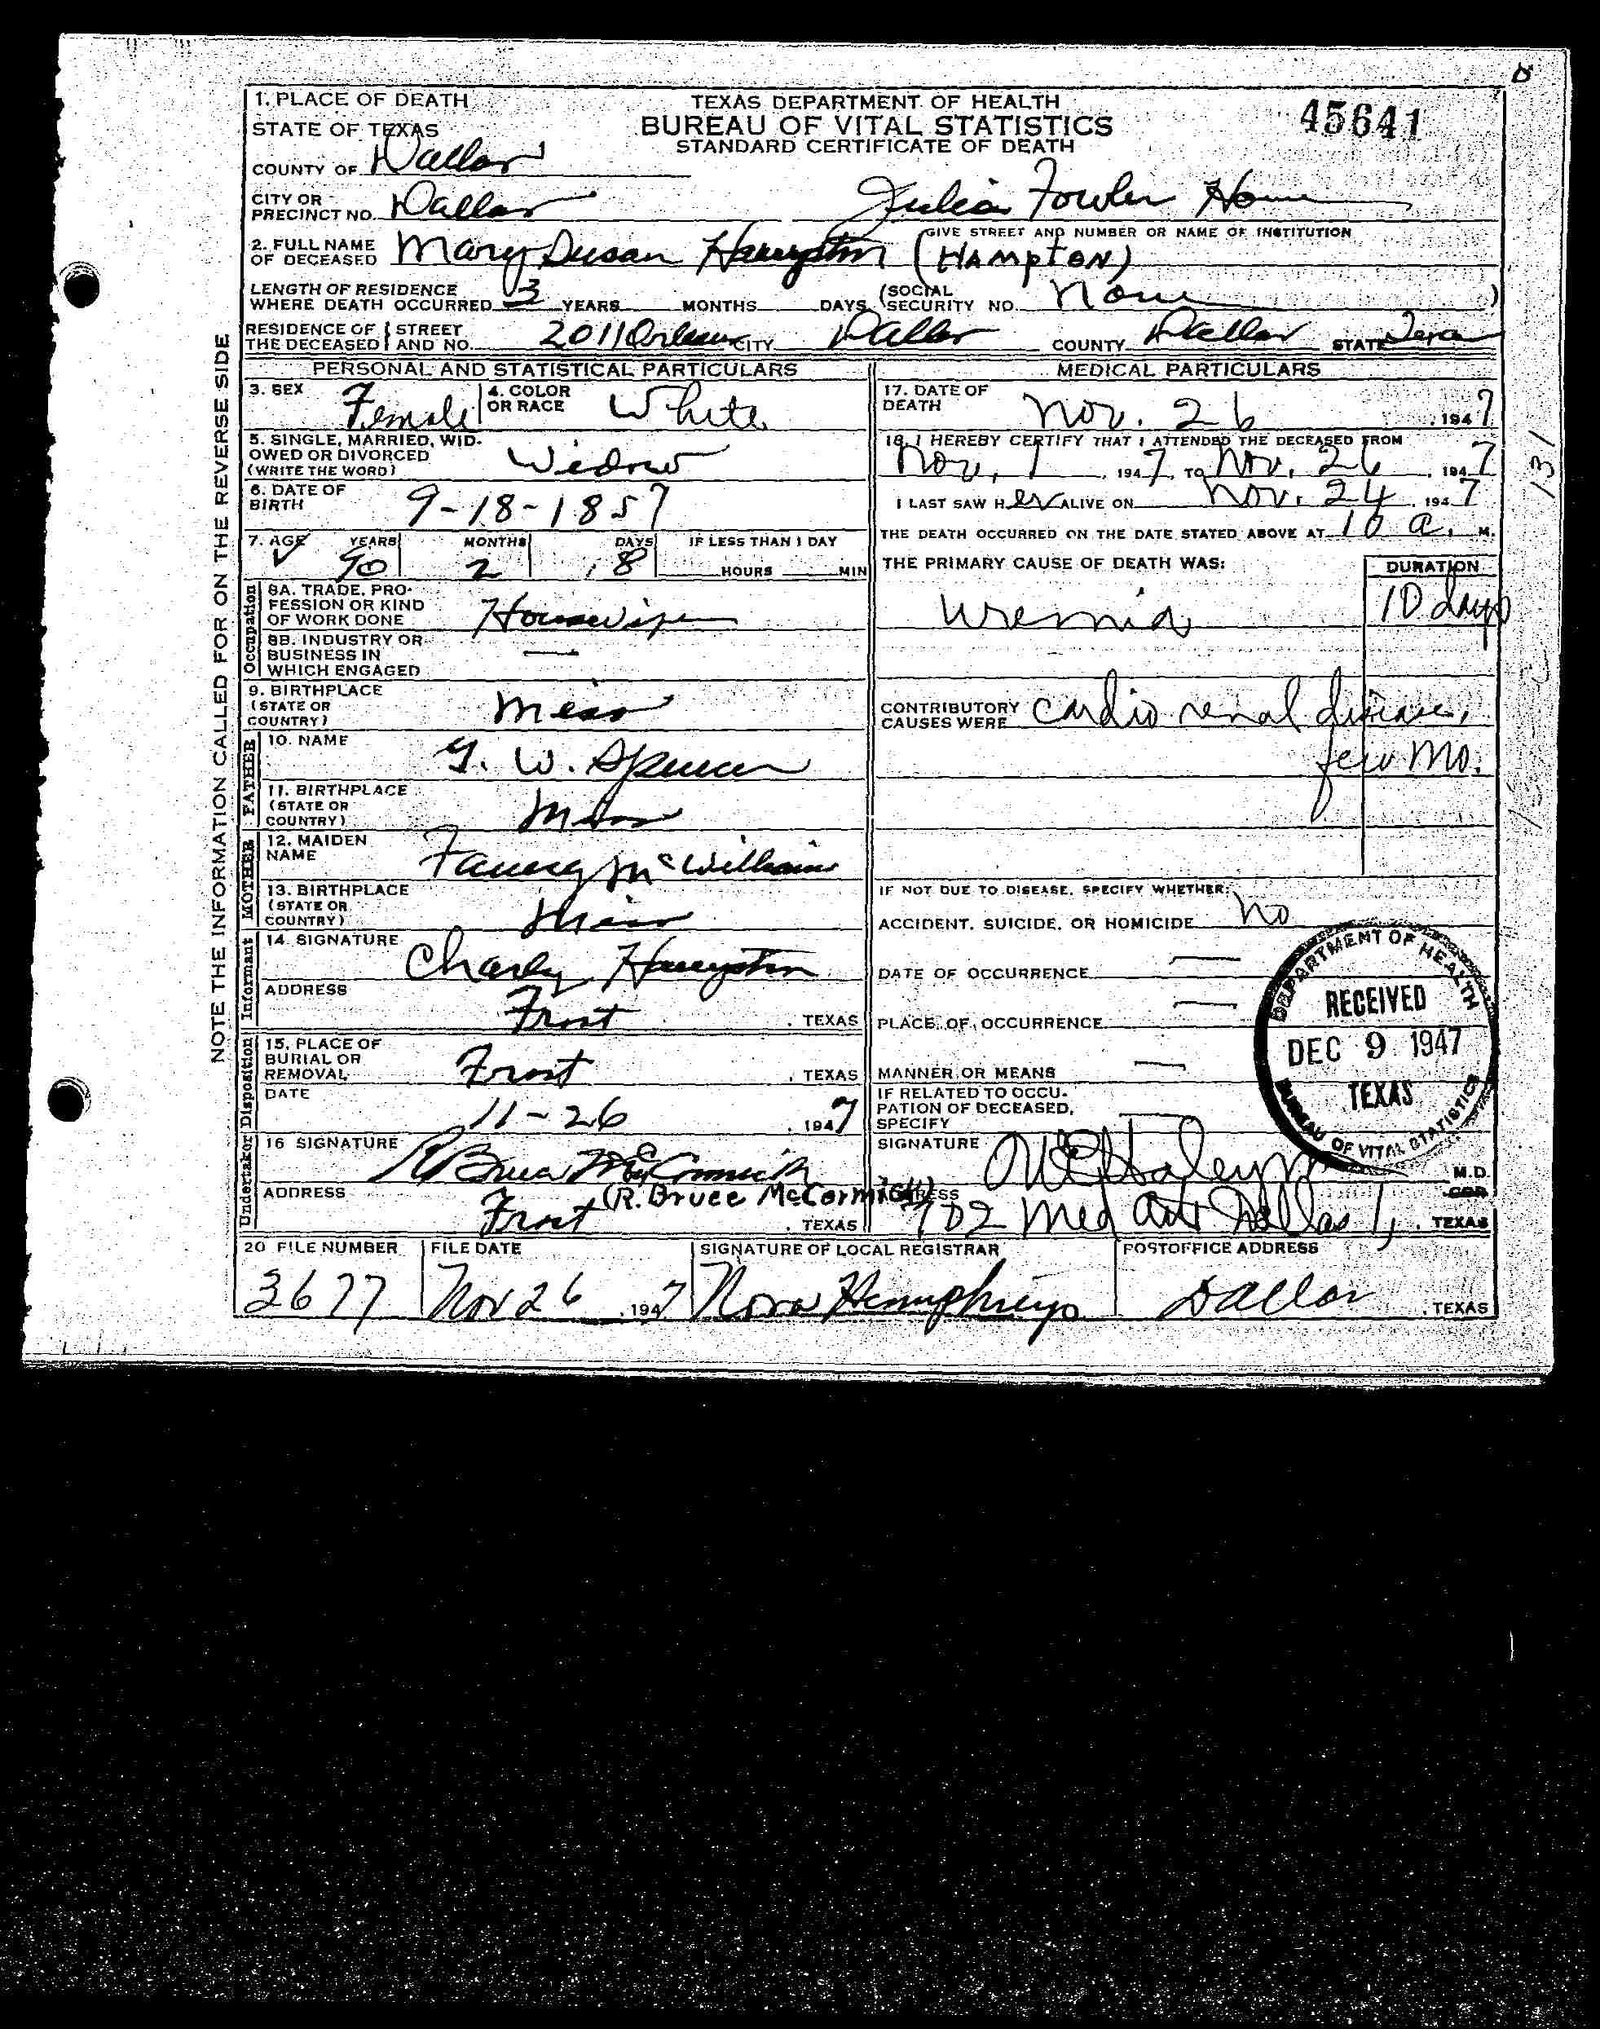 45641
1. PLACE OF DEATH
STATE OF TEXAS
COUNTY OF Dallas
TEXAS DEPARTMENT OF HEALTH
BUREAU OF VITAL STATISTICS
STANDARD CERTIFICATE OF DEATH
CITY OR PRECINCT NO. Dallas Julia Fowler Home
GIVE STREET AND NUMBER OR NAME OF INSTITUTION
2. FULL NAME OF DECEASED Mary Susan Hampton (HAMPTON)
LENGTH OF RESIDENCE WHERE DEATH OCCURRED 3 YEARS MONTHS DAYS (SOCIAL SECURITY NO. None )
RESIDENCE OF THE DECEASED { STREET AND NO. 2011 Orleans CITY Dallas COUNTY Dallas STATE Texas
NOTE THE INFORMATION CALLED FOR ON THE REVERSE SIDE
PERSONAL AND STATISTICAL PARTICULARS
3. SEX Female 4. COLOR OR RACE White
5. SINGLE, MARRIED, WIDOWED OR DIVORCED (WRITE THE WORD) Widow
6. DATE OF BIRTH 9-18-1857
7. AGE YEARS MONTHS DAYS IF LESS THAN 1 DAY
90 2 8 HOURS MIN
Occupation
8A. TRADE, PROFESSION OR KIND OF WORK DONE Housewife
8B. INDUSTRY OR BUSINESS IN WHICH ENGAGED —
9. BIRTHPLACE (STATE OR COUNTRY) Miss
FATHER
10. NAME G. W. Spencer
11. BIRTHPLACE (STATE OR COUNTRY) Miss
MOTHER
12. MAIDEN NAME Fanny McWilliams
13. BIRTHPLACE (STATE OR COUNTRY) Miss
Informant
14. SIGNATURE Charley Hampton
ADDRESS Frost, TEXAS
Disposition
15. PLACE OF BURIAL OR REMOVAL Frost, TEXAS
DATE 11-26, 1947
Undertaker
16 SIGNATURE R Bruce McCormick
(R. Bruce McCormick)
ADDRESS Frost, TEXAS
MEDICAL PARTICULARS
17. DATE OF DEATH Nov. 26, 1947
18. I HEREBY CERTIFY THAT I ATTENDED THE DECEASED FROM
Nov. 1, 1947, TO Nov. 26, 1947
I LAST SAW HER ALIVE ON Nov. 24, 1947
THE DEATH OCCURRED ON THE DATE STATED ABOVE AT 10 a. M.
THE PRIMARY CAUSE OF DEATH WAS: DURATION
Uremia 10 days
CONTRIBUTORY CAUSES WERE cardio renal disease,
few mo.
IF NOT DUE TO DISEASE, SPECIFY WHETHER:
ACCIDENT, SUICIDE, OR HOMICIDE No
DATE OF OCCURRENCE —
PLACE OF OCCURRENCE —
MANNER OR MEANS —
IF RELATED TO OCCUPATION OF DECEASED, SPECIFY —
SIGNATURE Haley M.D. COR
ADDRESS 702 Med Arts Dallas 1, TEXAS
DEPARTMENT OF HEALTH
RECEIVED
DEC 9 1947
TEXAS
BUREAU OF VITAL STATISTICS
131
20 FILE NUMBER FILE DATE SIGNATURE OF LOCAL REGISTRAR POSTOFFICE ADDRESS
3677 Nov 26, 1947 Nora Humphreys Dallas, TEXAS